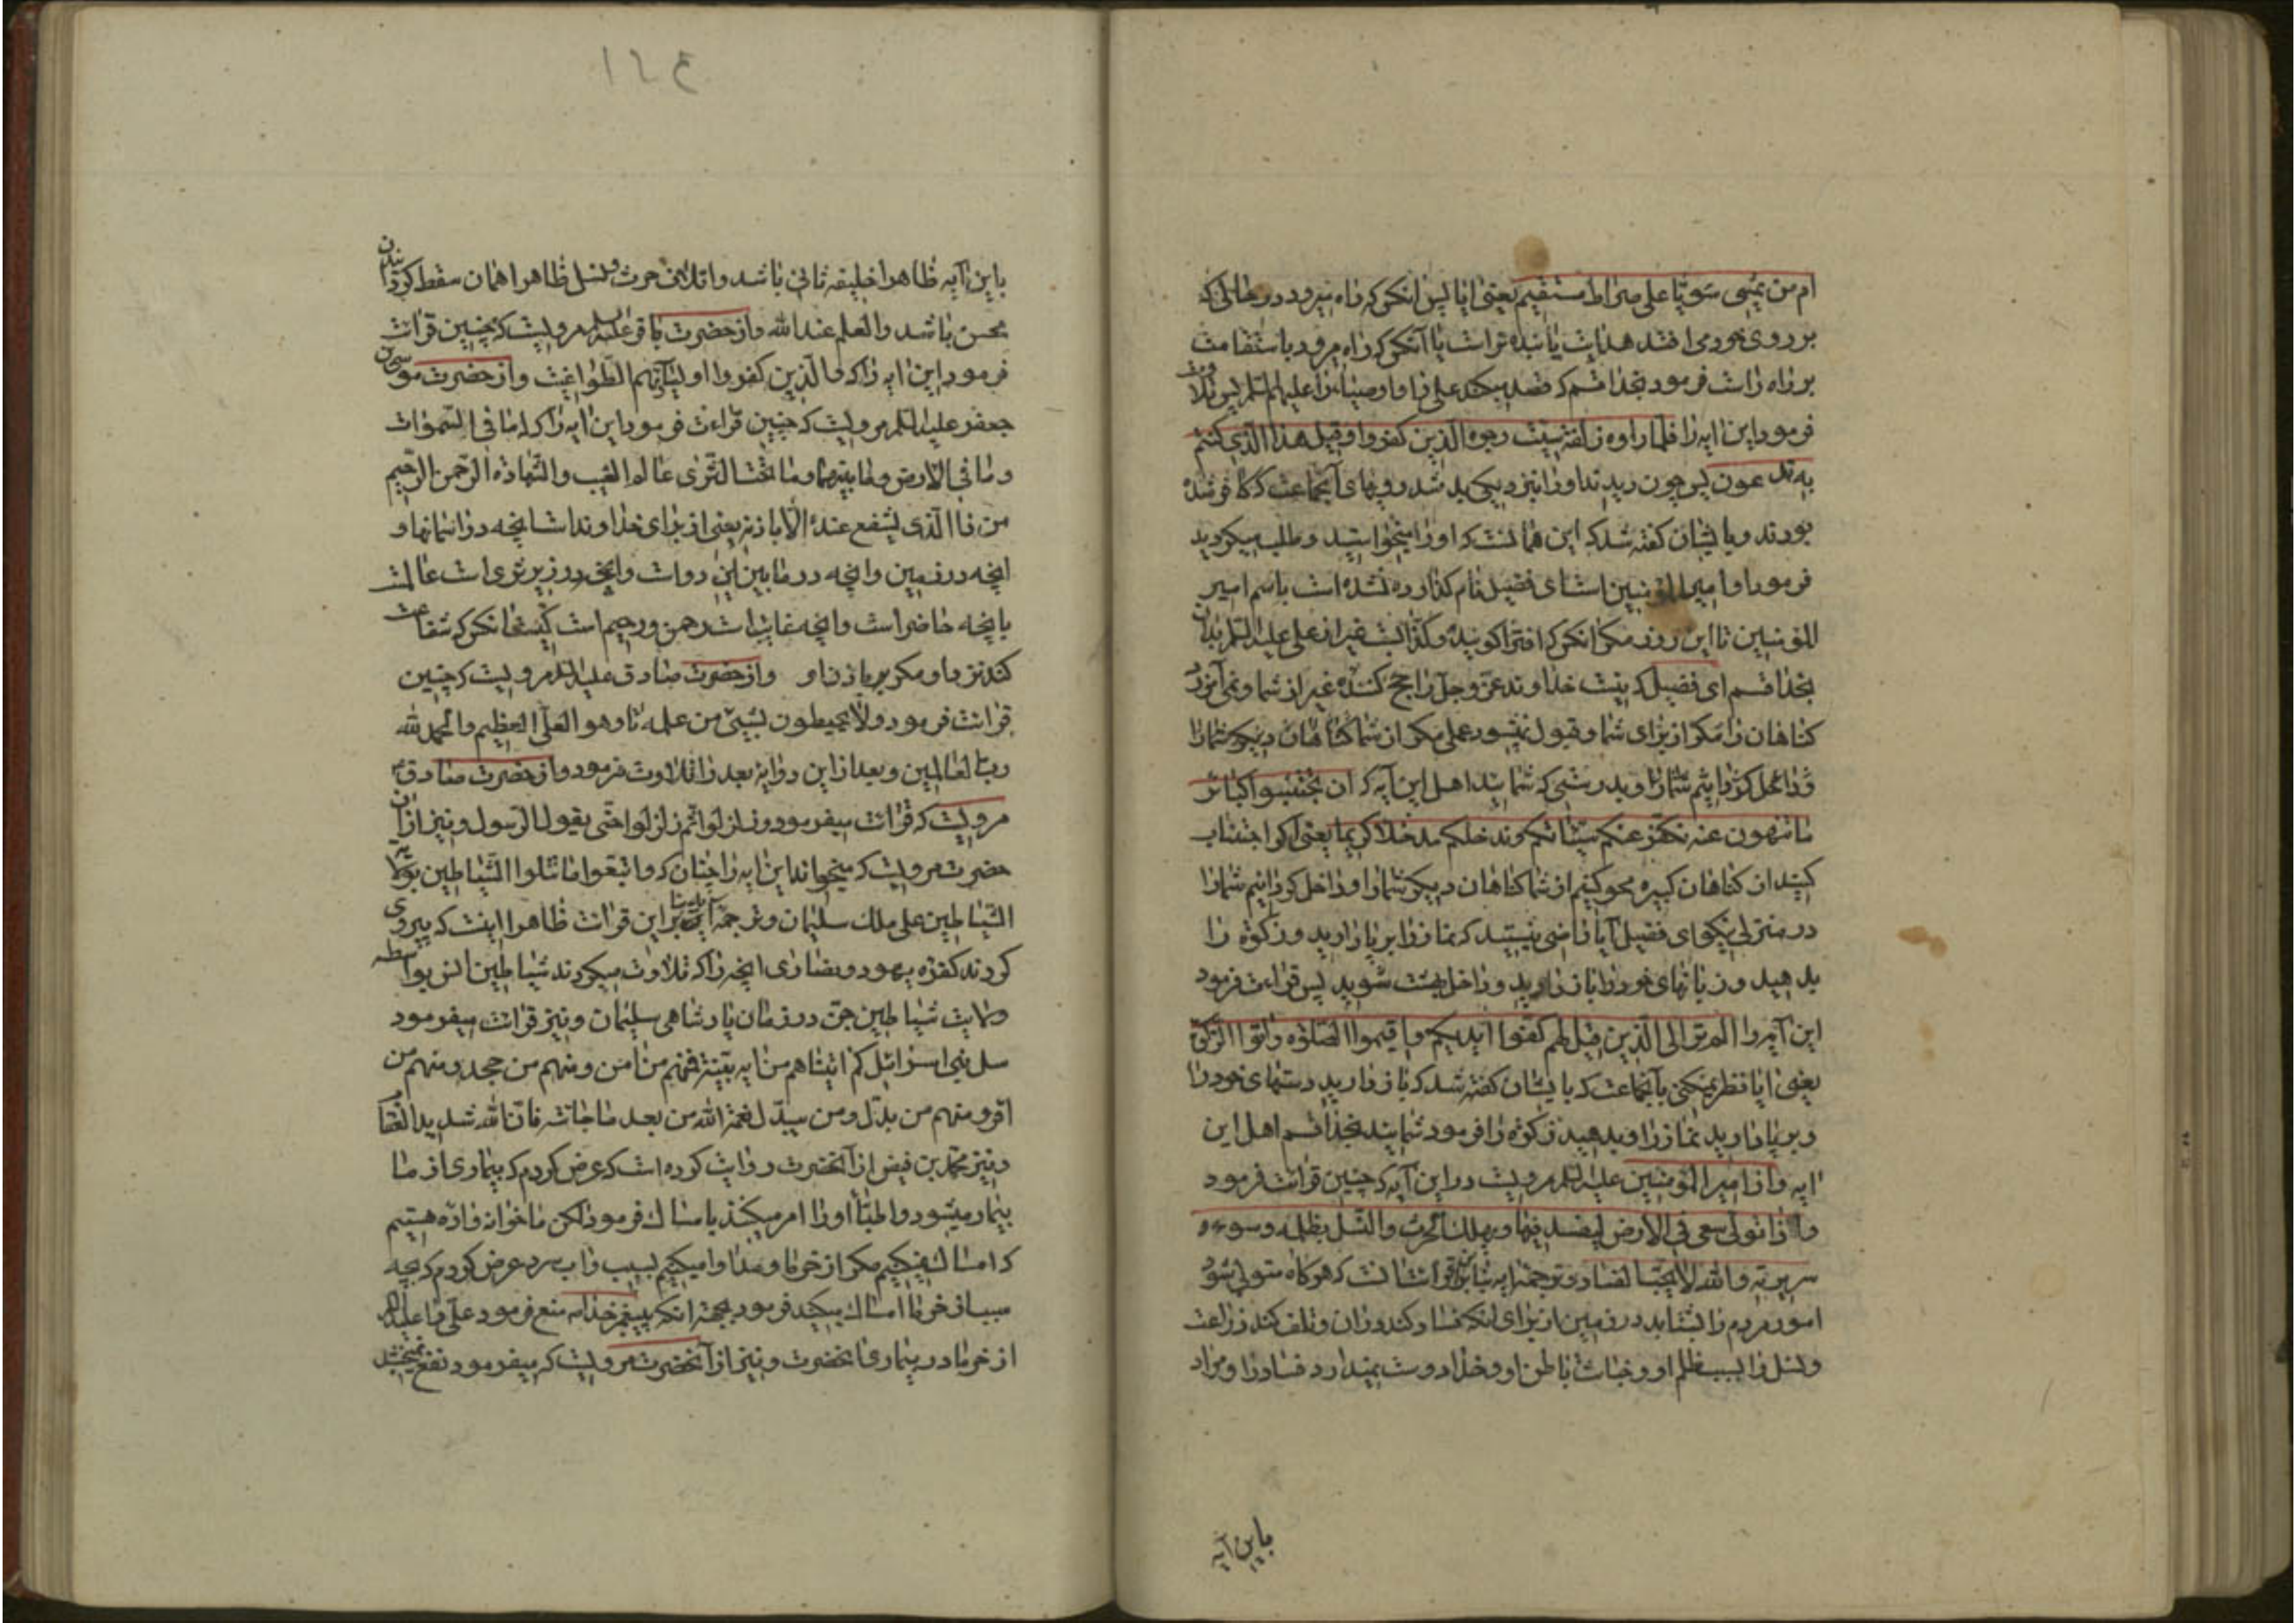 ام من یمشی سویّا علی صراط مستقیم یعنی ایا پس انکس که راه میرود در حالی که
بر روی خود می افتد هدایت یابنده تر است یا آنکس که راه میرود باستقامت
بر راه راست فرمود بخدا قسم که قصد میکند علی را و اوصیا را علیهم السلم پس تلاوت
فرمود این ایه را فلما راوه زلفة سیئت وجوه الذین کفروا و قیل هذا الذی کنتم
به تدعون پس چون دیدند او را نزدیک بد شد رویهای آنجماعت که کافر شده
بودند و بایشان کفته شد که این همانست که او را میخواستید و طلب میکردید
فرمود او امیر المؤمنین است ای فضیل نام کذارده نشده است باسم امیر
المؤمنین تا این روز مکر انکس که افترا کوینده و کذابست غیر از علی علیه السلم بدان
بخدا قسم ای فضیل که نیست خداوند عزّ و جلّ را حج کننده غیر از شما و نمی آمرزد
کناهان را مکر از برای شما و قبول نمیشود عملی مکر از شما کناهان دیکر شما را
و داخل کردانیم شما را و بدرستی که شمائید اهل این آیه که ان تجتنبوا کبائر
ما تنهون عنه نکفر عنکم سیئاتکم و ندخلکم مدخلا کریما یعنی اکر اجتناب
کنید از کناهان کبیره محو کنیم از شما کناهان دیکر شما را و داخل کردانیم شما را
در منزلی نیکو ای فضیل آیا راضی نیستید که نماز را برپا دارید و زکوة را
بدهید و زبانهای خود را باز دارید و داخل بهشت شوید پس قراءت فرمود
این آیه را الم تر الی الذین قیل لهم کفوا ایدیکم و اقیموا الصلوة و اتوا الزکوة
یعنی ایا نظر نمیکنی بآنجماعت که بایشان کفته شد که باز دارید دستهای خود را
و برپا دارید نماز را و بدهید زکوة را فرمود شمائید بخدا قسم اهل این
ایه و از امیر المؤمنین علیه السلم مرویست در این آیه که چنین قرائت فرمود
و اذا تولی سعی فی الارض لیفسد فیها و یهلک الحرث و النسل بظلمه و سوء
سریرته و الله لا یحب الفساد و ترجمه ایه بنا بر این قرائت انست که هرکاه متولی شود
امور مردم را بشتابد در زمین از برای انکه فساد کند در ان و تلف کند زراعت
و نسل را بسبب ظلم او و خباثت باطن او و خدا دوست نمیدارد فساد را و مراد
باین آیه
۱۲۴
باین آیه ظاهرا خلیفه ثانی باشد و اتلاف حرث و نسل ظاهرا همان سقط کردانیدن
محسن باشد و العلم عند الله و از حضرت باقر علیه السلم مرویست که چنین قرائت
فرمود این ایه را که و الذین کفروا اولیآئهم الطواغیت و از حضرت موسی بن
جعفر علیه السلم مرویست که چنین قراءت فرمود این ایه را که له ما فی السموات
و ما فی الارض و ما بینهما و ما تحت الثری عالم الغیب و الشهادة الرحمن الرحیم
من ذا الذی یشفع عنده الا باذنه یعنی از برای خداوند است انچه در اسمانها و
انچه در زمین و انچه در مابین این دو است و انچه در زیر ثری است عالمست
بانچه حاضر است و انچه غایب است رحمن و رحیم است کیست انکس که شفاعت
کند نزد او مکر باذن او و از حضرت صادق علیه السلم مرویست که چنین
قرائت فرمود و لا یحیطون بشیئ من علمه تا و هو العلی العظیم و الحمد لله
رب العالمین و بعد از این دو ایه بعد را تلاوت فرمود و از حضرت صادق ع
مرویست که قرائت میفرمود و زلزلوا ثم زلزلوا حتی یقول الرسول و نیز از ان
حضرت مرویست که میخواند این ایه را چنان که و اتبعوا ما تتلوا الشیاطین بولایة
الشیاطین علی ملک سلیمان و ترجمه آیه بنا بر این قرائت ظاهرا اینست که پیروی
کردند کفره یهود و نصاری انچه را که تلاوت میکردند شیاطین انس بواسطه
ولایت شیاطین جن در زمان پادشاهی سلیمان و نیز قرائت میفرمود
سل بنی اسرائیل کم اتیناهم من ایه بینة فمنهم من امن و منهم من جحد و منهم من
اقر و منهم من بدّل و من یبدّل نعمة الله من بعد ما جائته فان الله شدید العقاب
و نیز محمد بن فیض از آنحضرت روایت کرده است که عرض کردم که بیماری از ما
بیمار میشود و اطبّا او را امر میکنند بامساک فرمود لکن ما خوانواده هستیم
که امساک نمیکنیم مکر از خرما و مداوا میکنیم بسیب و اب سرد عرض کردم که بچه
سبب از خرما امساک میکنید فرمود بجهة انکه پیغمبر خدا ص منع فرمود علی را علیه السلم
از خرما در بیماری انحضرت و نیز از آنحضرت مرویست که میفرمود نفع نمیبخشد